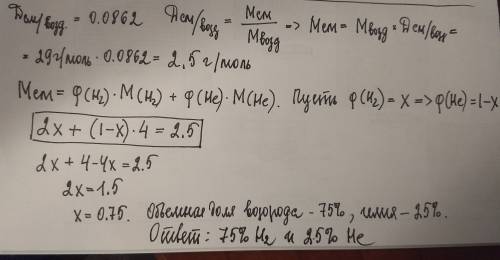 Dсм/возд. = 0.0862 Dсм/возд = Mсм/Mвозд => Mсм = Mвозд · Dсм/возд =
= 29 г/моль · 0.0862 = 2,5 г/моль
Mсм = φ(H₂) · M(H₂) + φ(He) · M(He). Пусть φ(H₂) = x => φ(He) = 1-x
2x + (1-x) · 4 = 2.5
2x + 4 - 4x = 2.5
2x = 1.5
x = 0.75. Объемная доля водорода - 75%, гелия - 25%.
Ответ: 75% H₂ и 25% He